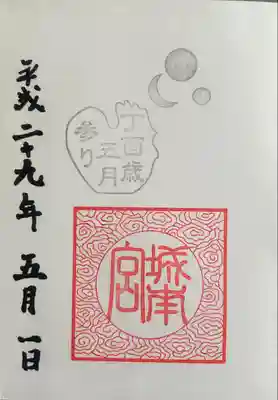 城南宮
丁酉歳
五月
参り
平成二十九年五月一日